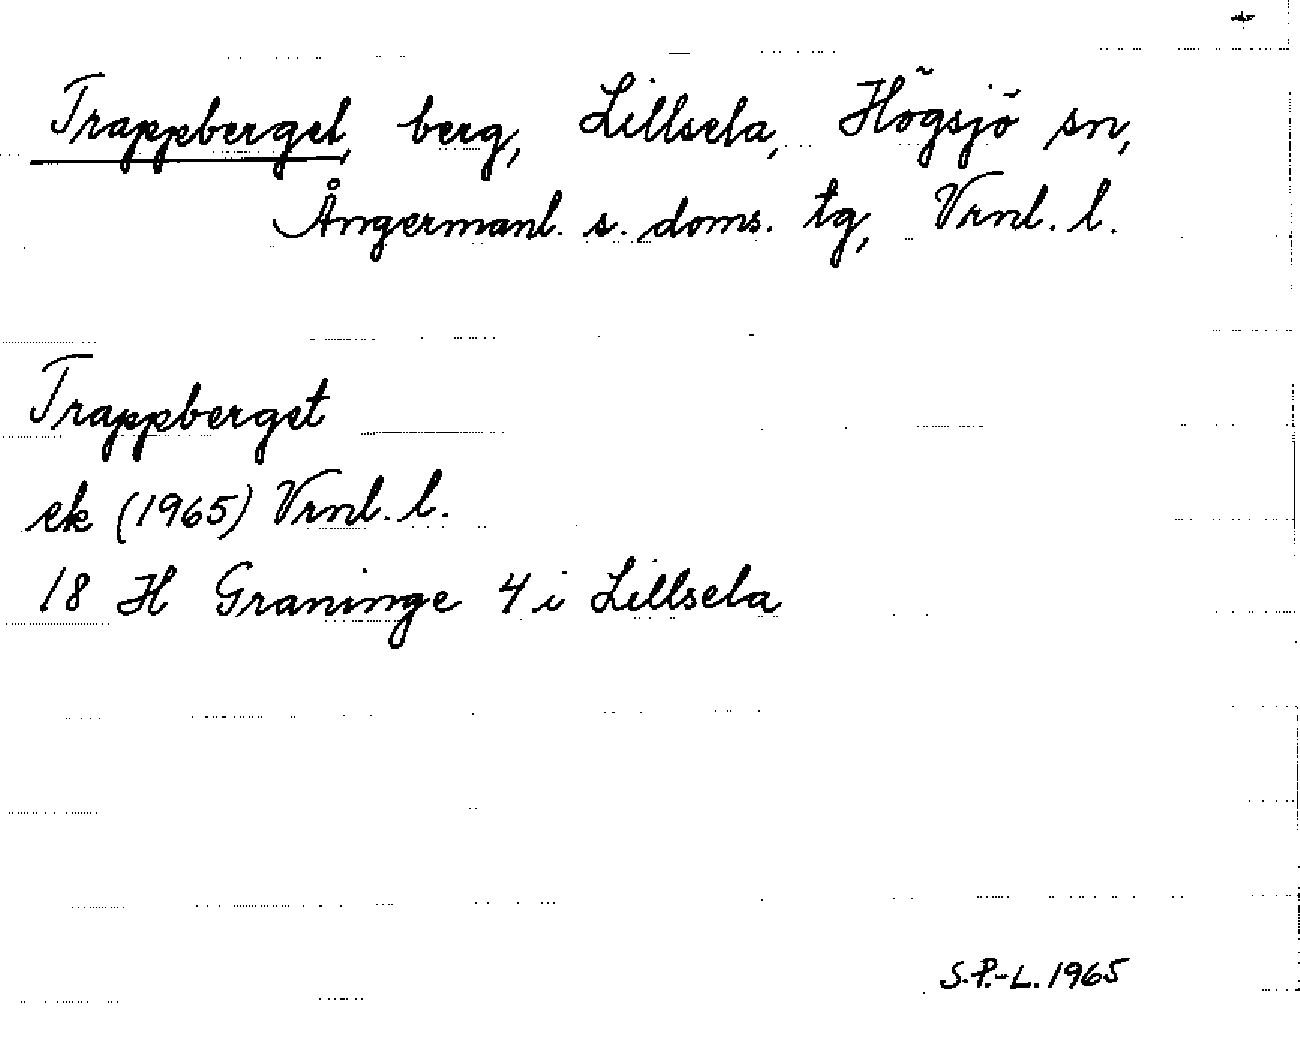 Trappberget, berg, Lillsela, Högsjö sn,
Ångermanl. s. doms. tg, Vrnl. l.
Trappberget
ek (1965) Vrnl. l.
18 H Graninge 4 i Lillsela
S.P.-L. 1965